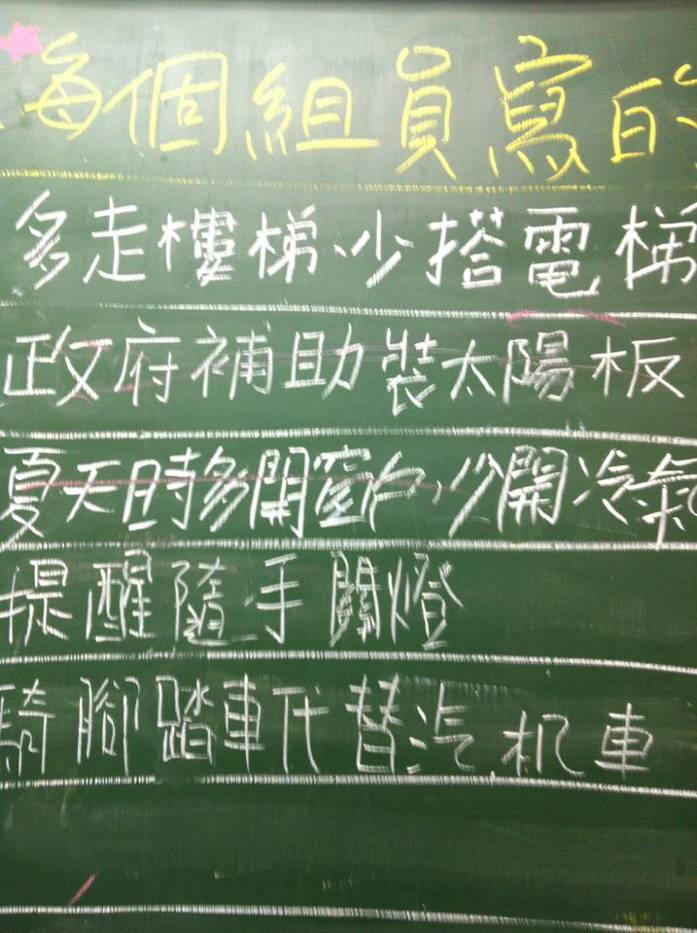 每個組員寫的
多走樓梯、少搭電梯
政府補助裝太陽板
夏天時多開窗戶,少開冷氣
提醒隨手關燈
騎腳踏車代替汽、机車